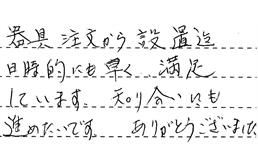 器具注文から設置迄
日時的にも早く満足
しています。知り合いにも
進めたいです。ありがとうございました